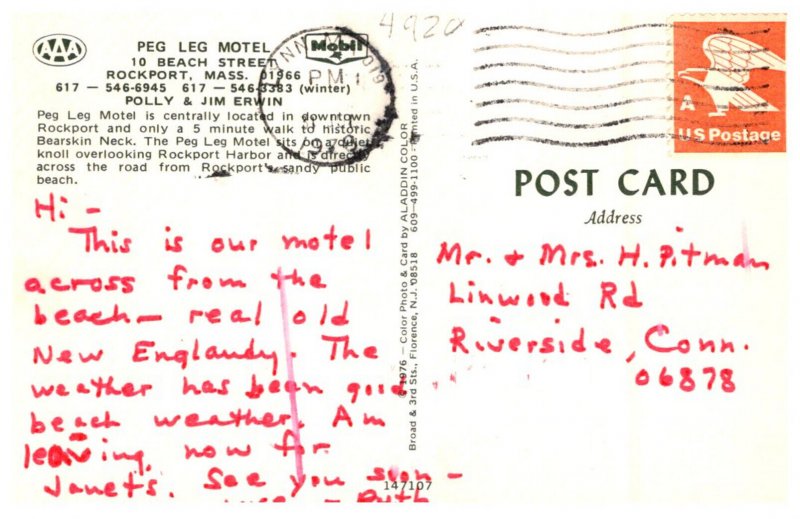 4920
AAA
PEG LEG MOTEL
Mobil
10 BEACH STREET
ROCKPORT, MASS. 01966
617 — 546-6945 617 — 546-3383 (winter)
POLLY & JIM ERWIN
Peg Leg Motel is centrally located in downtown
Rockport and only a 5 minute walk to historic
Bearskin Neck. The Peg Leg Motel sits on a quiet
knoll overlooking Rockport Harbor and is directly
across the road from Rockport's sandy public
beach.
PM
Hi -
This is our motel
across from the
beach - real old
New Englandy. The
weather has been good
beach weather. Am
leaving now for
Janet's. See you soon -
Ruth
© 1976 — Color Photo & Card by ALADDIN COLOR
Broad & 3rd Sts., Florence, N.J. 08518 609-499-1100 - Printed in U.S.A.
147107
A
US Postage
POST CARD
Address
Mr. + Mrs. H. Pitman
Linwood Rd
Riverside, Conn.
06878